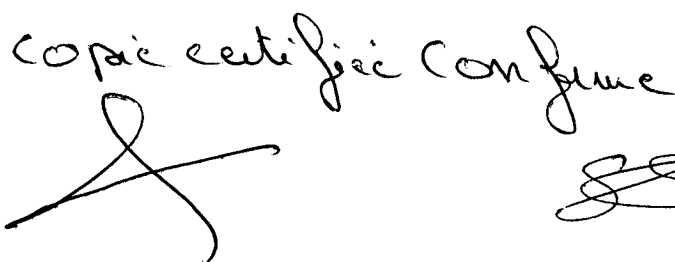 copie certifiée conforme